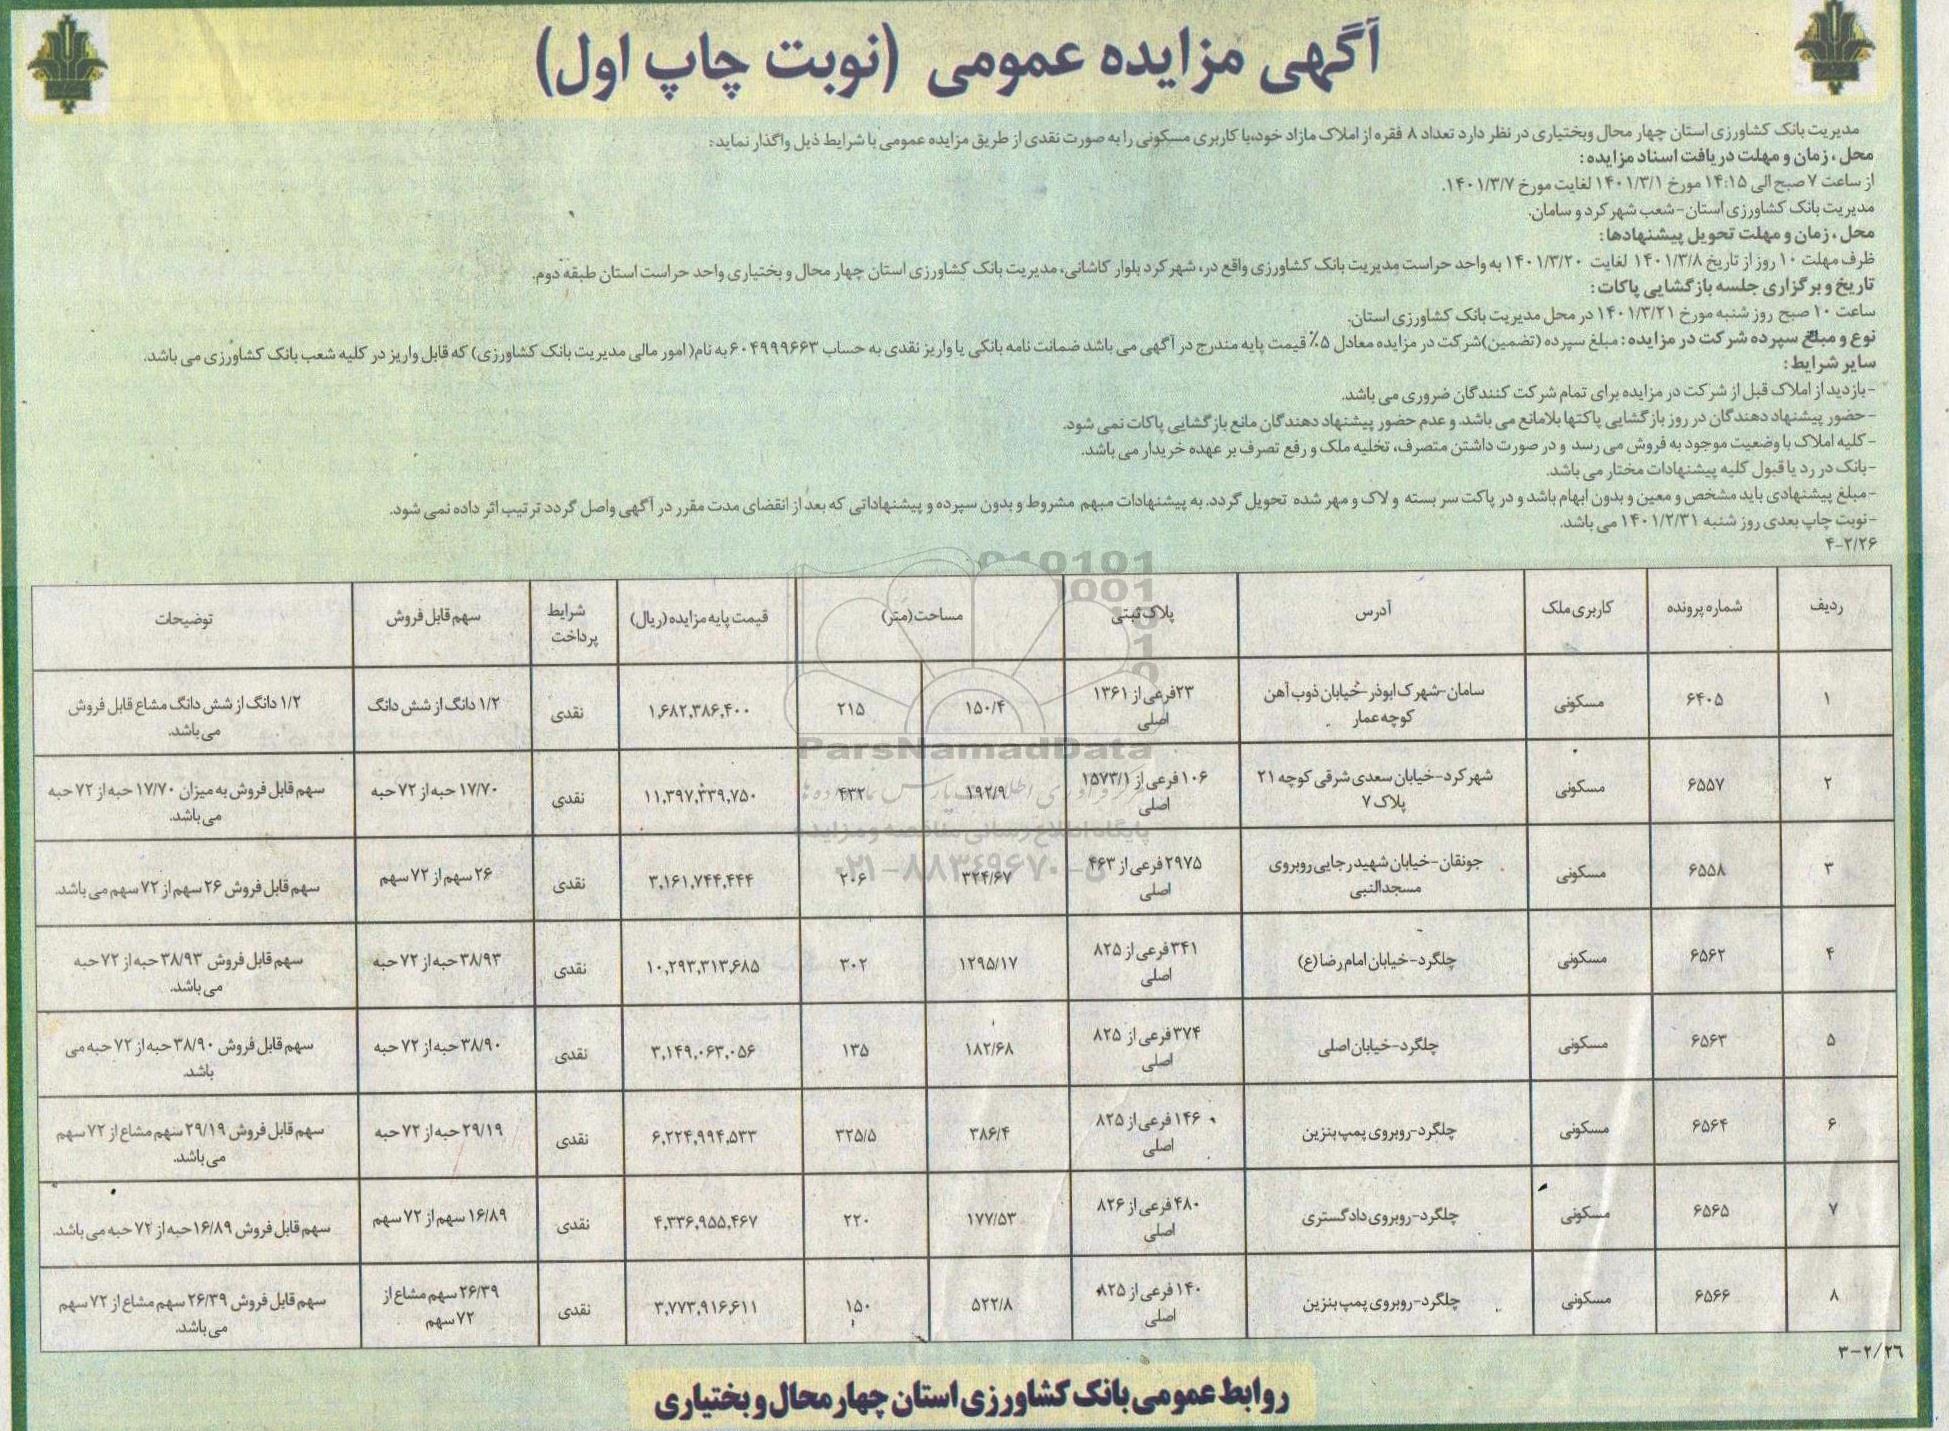 آگهی مزایده عمومی (نوبت چاپ اول)
مدیریت بانک کشاورزی استان چهار محال وبختیاری در نظر دارد تعداد ۸ فقره از املاک مازاد خود،با کاربری مسکونی را به صورت نقدی از طریق مزایده عمومی با شرایط ذیل واگذار نماید:
محل ، زمان و مهلت دریافت اسناد مزایده :
از ساعت ۷ صبح الی ۱۴:۱۵ مورخ ۱۴۰۱/۳/۱ لغایت مورخ ۱۴۰۱/۳/۷.
مدیریت بانک کشاورزی استان-شعب شهر کرد و سامان.
محل ، زمان و مهلت تحویل پیشنهادها :
ظرف مهلت ۱۰ روز از تاریخ ۱۴۰۱/۳/۸ لغایت ۱۴۰۱/۳/۲۰ به واحد حراست مدیریت بانک کشاورزی واقع در، شهر کرد بلوار کاشانی، مدیریت بانک کشاورزی استان چهار محال و بختیاری واحد حراست استان طبقه دوم.
تاریخ و برگزاری جلسه بازگشایی پاکات :
ساعت ۱۰ صبح روز شنبه مورخ ۱۴۰۱/۳/۲۱ در محل مدیریت بانک کشاورزی استان.
نوع و مبلغ سپرده شرکت در مزایده : مبلغ سپرده (تضمین)شرکت در مزایده معادل ۵٪ قیمت پایه مندرج در آگهی می باشد ضمانت نامه بانکی یا واریز نقدی به حساب ۶۰۴۹۹۹۶۶۳ به نام( امور مالی مدیریت بانک کشاورزی) که قابل واریز در کلیه شعب بانک کشاورزی می باشد.
سایر شرایط :
-بازدید از املاک قبل از شرکت در مزایده برای تمام شرکت کنندگان ضروری می باشد.
-حضور پیشنهاد دهندگان در روز بازگشایی پاکتها بلامانع می باشد. و عدم حضور پیشنهاد دهندگان مانع بازگشایی پاکات نمی شود.
-کلیه املاک با وضعیت موجود به فروش می رسد و در صورت داشتن متصرف، تخلیه ملک و رفع تصرف بر عهده خریدار می باشد.
-بانک در رد یا قبول کلیه پیشنهادات مختار می باشد.
-مبلغ پیشنهادی باید مشخص و معین و بدون ابهام باشد و در پاکت سر بسته و لاک و مهر شده تحویل گردد. به پیشنهادات مبهم مشروط و بدون سپرده و پیشنهاداتی که بعد از انقضای مدت مقرر در آگهی واصل گردد ترتیب اثر داده نمی شود.
-نوبت چاپ بعدی روز شنبه ۱۴۰۱/۲/۳۱ می باشد.
۴-۲/۲۶
ردیف شماره پرونده کاربری ملک آدرس پلاک ثبتی مساحت (متر) قیمت پایه مزایده (ریال) شرایط پرداخت سهم قابل فروش توضیحات
۱ ۶۴۰۵ مسکونی سامان-شهرک ابوذر-خیابان ذوب آهن کوچه عمار ۲۳فرعی از ۱۳۶۱ اصلی ۱۵۰/۴ ۲۱۵ ۱,۶۸۲,۳۸۶,۴۰۰ نقدی ۱/۲ دانگ از شش دانگ ۱/۲ دانگ از شش دانگ مشاع قابل فروش می باشد.
۲ ۶۵۵۷ مسکونی شهر کرد-خیابان سعدی شرقی کوچه ۲۱ پلاک ۷ ۱۰۶ فرعی از ۱۵۷۳/۱ اصلی ۱۹۲/۹ ۴۳۲ ۱۱,۳۹۷,۳۳۹,۷۵۰ نقدی ۱۷/۷۰ حبه از ۷۲ حبه سهم قابل فروش به میزان ۱۷/۷۰ حبه از ۷۲ حبه می باشد.
۳ ۶۵۵۸ مسکونی جونقان-خیابان شهید رجایی روبروی مسجدالنبی ۲۹۷۵ فرعی از ۴۶۳ اصلی ۳۲۴/۶۷ ۲۰۶ ۳,۱۶۱,۷۴۴,۴۴۴ نقدی ۲۶ سهم از ۷۲ سهم سهم قابل فروش ۲۶ سهم از ۷۲ سهم می باشد.
۴ ۶۵۶۲ مسکونی چلگرد-خیابان امام رضا (ع) ۳۴۱ فرعی از ۸۲۵ اصلی ۱۲۹۵/۱۷ ۳۰۲ ۱۰,۲۹۳,۳۱۳,۶۸۵ نقدی ۳۸/۹۳ حبه از ۷۲ حبه سهم قابل فروش ۳۸/۹۳ حبه از ۷۲ حبه می باشد.
۵ ۶۵۶۳ مسکونی چلگرد-خیابان اصلی ۳۷۴ فرعی از ۸۲۵ اصلی ۱۸۲/۶۸ ۱۳۵ ۳,۱۴۹,۰۶۳,۰۵۶ نقدی ۳۸/۹۰ حبه از ۷۲ حبه سهم قابل فروش ۳۸/۹۰ حبه از ۷۲ حبه می باشد.
۶ ۶۵۶۴ مسکونی چلگرد-روبروی پمپ بنزین ۱۴۶ فرعی از ۸۲۵ اصلی ۳۸۶/۴ ۳۲۵/۵ ۶,۲۲۴,۹۹۴,۵۳۳ نقدی ۲۹/۱۹ حبه از ۷۲ حبه سهم قابل فروش ۲۹/۱۹ سهم مشاع از ۷۲ سهم می باشد.
۷ ۶۵۶۵ مسکونی چلگرد-روبروی دادگستری ۴۸۰ فرعی از ۸۲۶ اصلی ۱۷۷/۵۳ ۲۲۰ ۴,۳۳۶,۹۵۵,۴۶۷ نقدی ۱۶/۸۹ سهم از ۷۲ سهم سهم قابل فروش ۱۶/۸۹ حبه از ۷۲ حبه می باشد.
۸ ۶۵۶۶ مسکونی چلگرد-روبروی پمپ بنزین ۱۴۰ فرعی از ۸۲۵ اصلی ۵۲۲/۸ ۱۵۰ ۳,۷۷۳,۹۱۶,۶۱۱ نقدی ۲۶/۳۹ سهم مشاع از ۷۲ سهم سهم قابل فروش ۲۶/۳۹ سهم مشاع از ۷۲ سهم می باشد.
ParsNamadData
پایگاه اطلاع رسانی مناقصه و مزایده
۰۲۱-۸۸۳۴۹۶۷۰-۵
۳-۲/۲۶
روابط عمومی بانک کشاورزی استان چهار محال و بختیاری